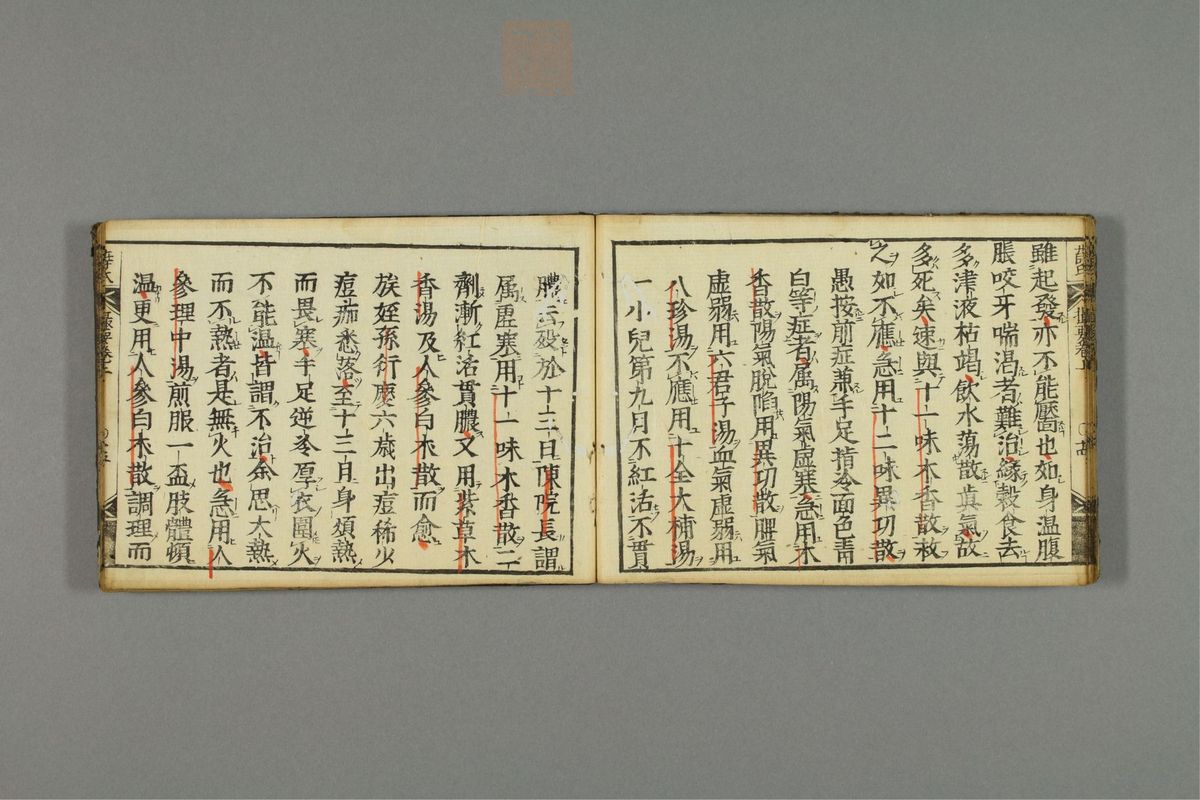 雖起發亦不能靨也如身温腹
脹咬牙喘渇者難治縁穀食去
多津液枯竭飲水蕩散真氣故
多死矣速與十一味木香散救
之如不應急用十二味異功散
愚按前症兼手足指冷面色青
白等症者属陽氣虚寒急用木
香散陽氣脱陷用異功散脾氣
虚弱用六君子湯血氣虚弱用
八珍湯不應用十全大補湯
一小兒第九日不紅活不貫
膿云殁於十三日陳院長謂
属虚寒用十一味木香散二
劑漸紅活貫膿又用紫草木
香湯及人參白朮散而愈
族姪孫行慶六歳出痘稀少
痘痂悉落至十三日身煩熱
而畏寒手足逆冷厚衣圍火
不能温皆謂不治余思大熱
而不熱者是無火也急用人
參理中湯煎服一盃肢體頓
温更用人參白朮散調理而